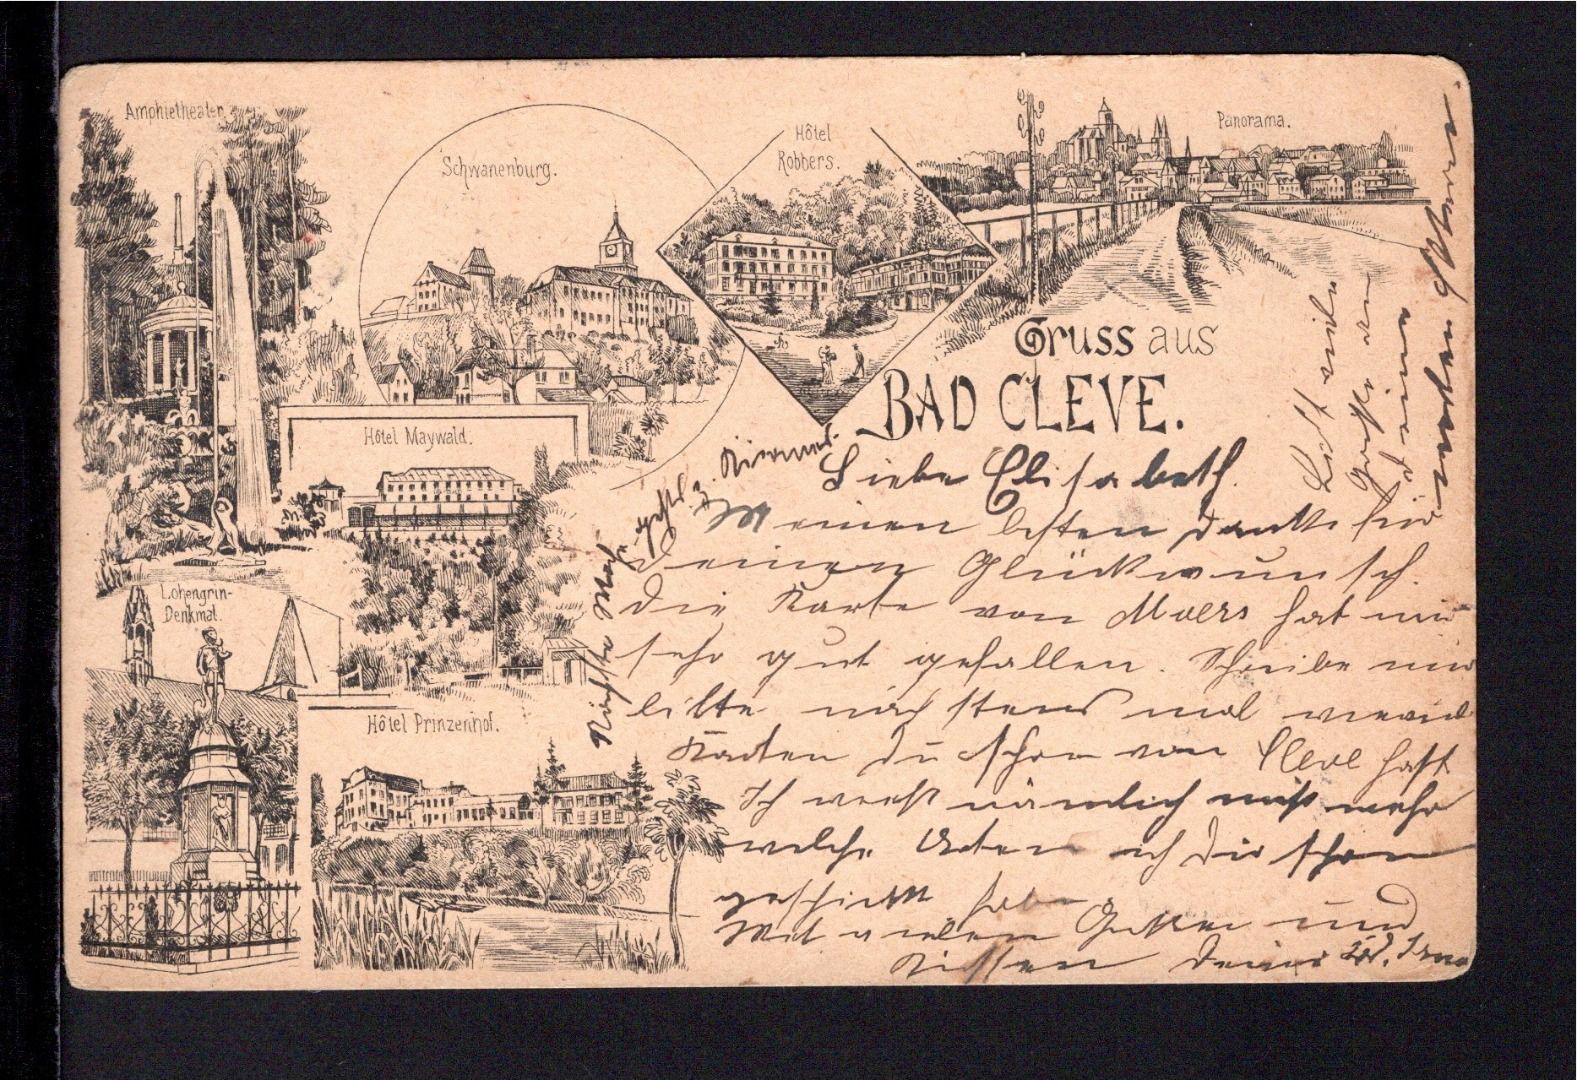 Amphietheater.
Schwanenburg.
Hôtel
Robbers.
Panorama.
Gruss aus
BAD CLEVE.
Hôtel Maywald.
Lohengrin-
Denkmal.
Hôtel Prinzenhof.
Liebe Elisabeth.
Meinen besten Dank für
Deinen Glückwunsch.
Die Karte von Moers hat mir
sehr gut gefallen. Schreibe mir
bitte nächstens mal wieviel
Karten Du schon von Cleve hast
Ich weiß nämlich nicht mehr
welche Arten ich Dir schon
geschickt habe
Mit vielen Grüßen und
Küssen Deine Irma
Nächste Woche
Grüße an
Deine